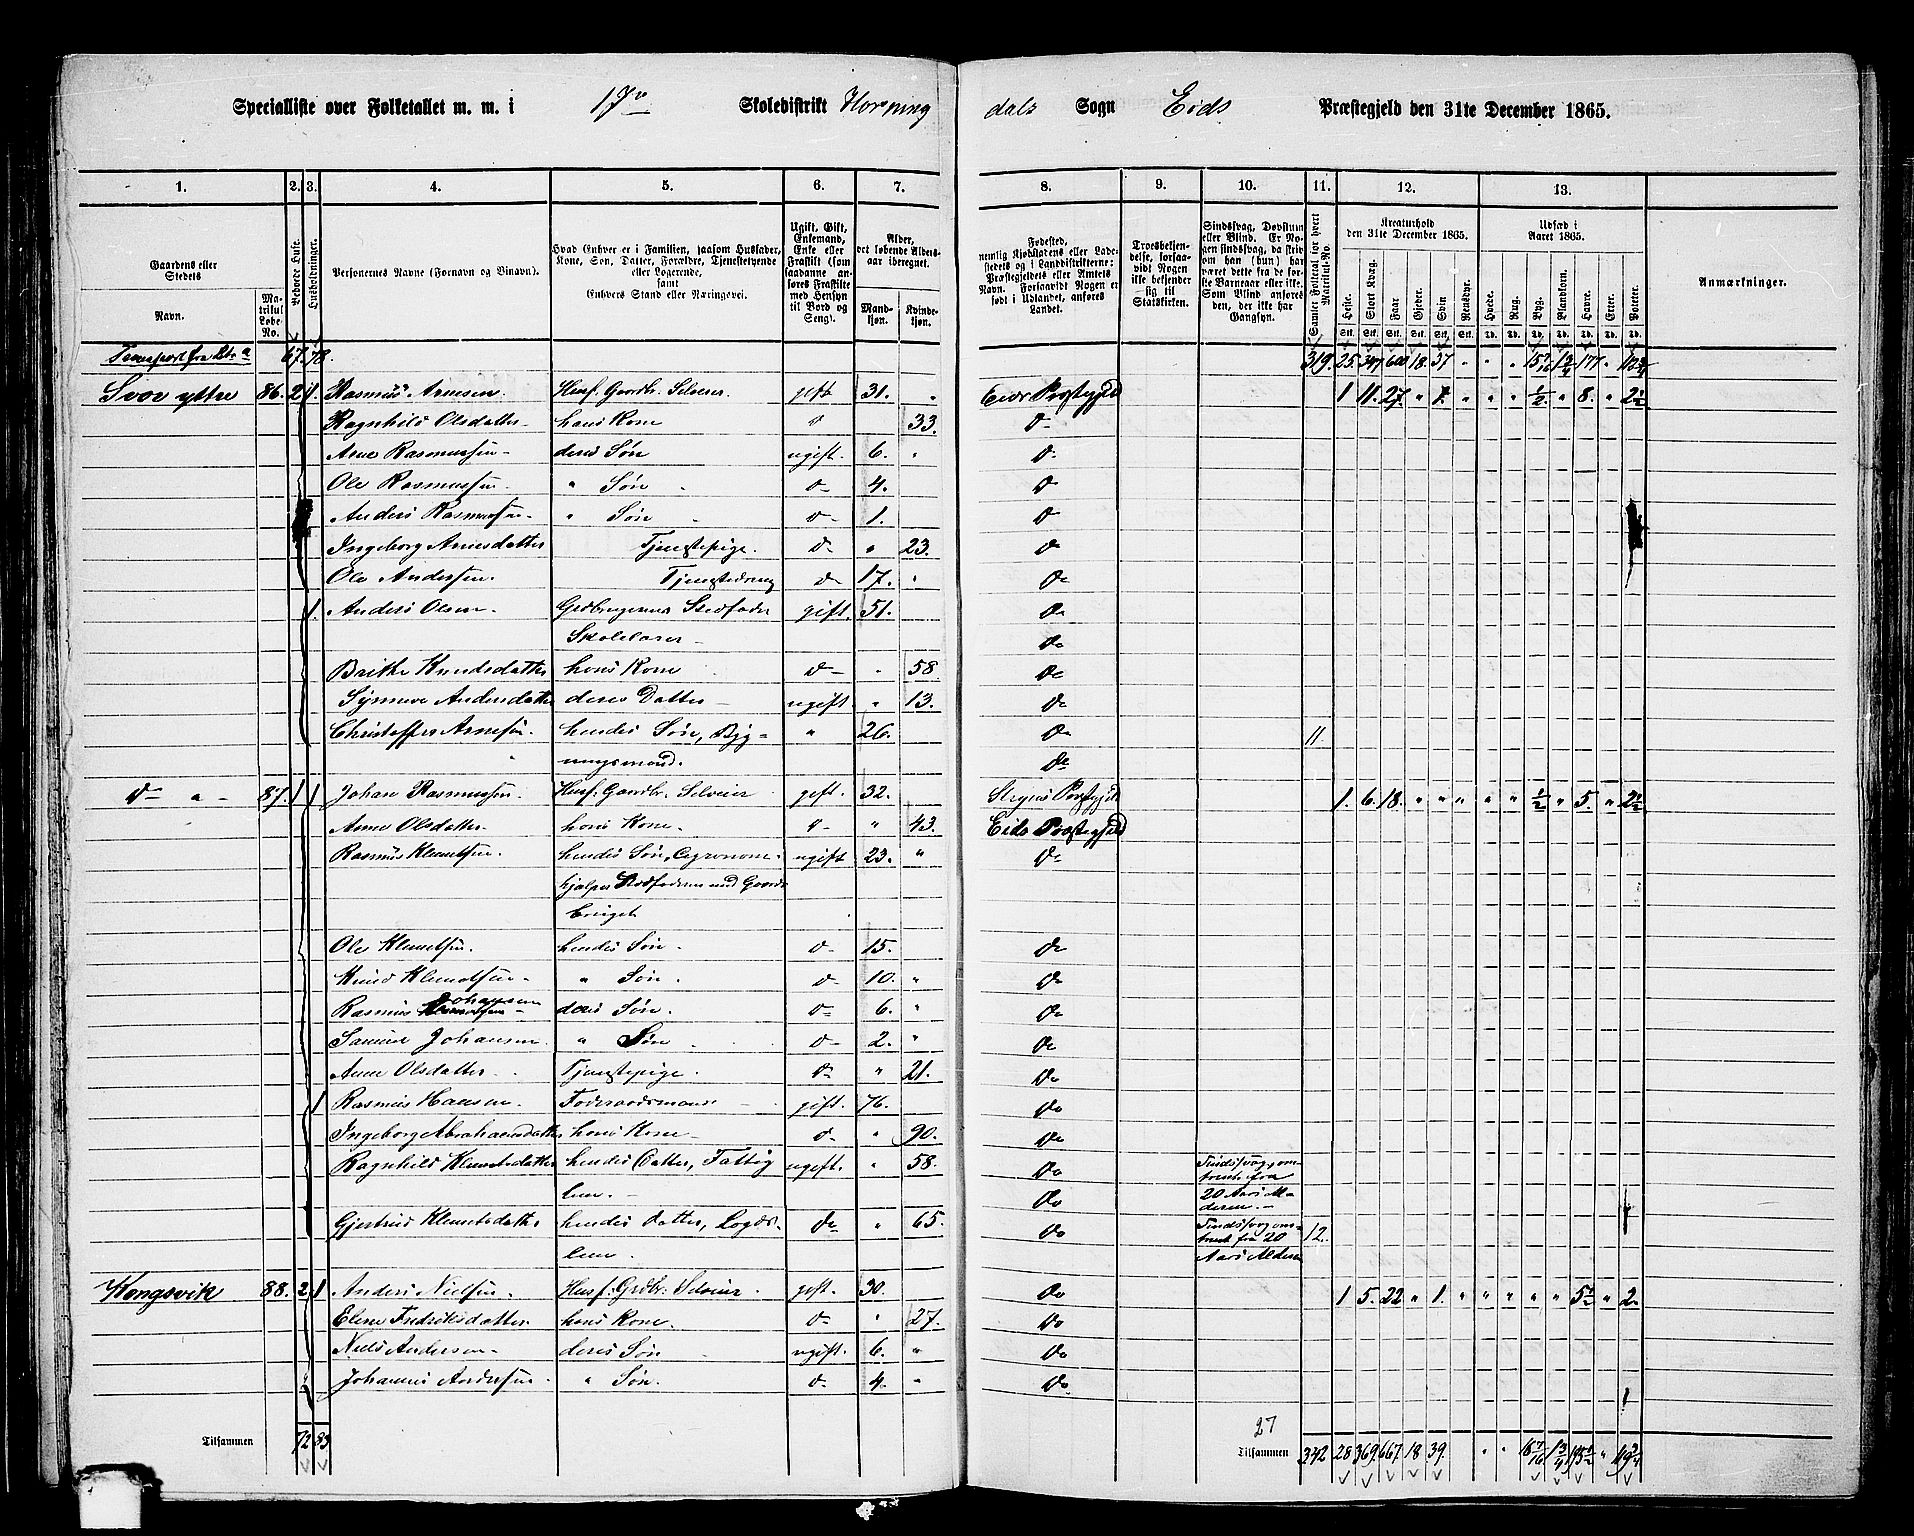 Specialliste over Folketallet m. m. i 17de Skoledistrikt Horning dals Sogn Eids Præstegjeld den 31te December 1865.
1. 2. 3. 4. 5. 6. 7. 8. 9. 10. 11. 12. 13.
Gaardens eller Stedets
Navn.
Matrikul Løbe-No.
Beboede Huse.
Husholdninger.
Personernes Navne (Fornavn og Tilnavn).
Hvad Enhver er i Familien, saasom Husfader, Kone, Søn, Datter, Forældre, Tjenestetyende eller Logerende, samt Enhvers Stand eller Næringsvei.
Ugift, Gift, Enkemand, Enke eller Fraskilt (som saadanne anføres Fraskilte med Hensyn til Bord og Seng).
Alder, det løbende Aldersaar iberegnet.
Mandkjøn. Kvindekjøn.
Fødested, nemlig Kjøbstadens eller Ladestedets og i Landdistrikterne: Præstegjeldets eller Amtets Navn. Forsaavidt Nogen er født i Udlandet, anføres Landet.
Troesbekjendelse, forsaavidt Nogen ikke bekjender sig til Statskirken.
Sindssvag, Døvstum eller Blind. Er Nogen sindssvag, da skrives om han (hun) har været dette fra de første Barneaar eller ikke. Som Blind anføres den, der ikke har Gangsyn.
Samlet Folketal for hvert Matrikul-No.
Kreaturhold den 31te December 1865.
Heste. Stort Kvæg. Faar. Gjeder. Svin. Rensdyr.
Udsæd i Aaret 1865.
Hvede. Rug. Byg. Blandkorn. Havre. Erter. Poteter.
Anmærkninger.
Transport fra Litr a 67. 78. 319. 25. 347 600 18. 37 " " " 15 7/16 1 3/4 177 " 113 3/4
Svor yttre 86. 2 1. Rasmus Arnesen Husf. Gaardbr. Selveier. gift 31. " Eids Præstegjeld 1 11. 27. " 1. " " " 1/2 " 8. " 2 1/2
Ragnhild Olsdatter hans Kone do 33. do
Arne Rasmussen deres Søn ugift. 6. " do
Ole Rasmussen " Søn do 4. do
Anders Rasmussen " Søn do 1. do
Ingeborg Arnesdatter Tjenestepige. do " 23. do
Ole Andersen. Tjenestedreng do 17. " do
1. Anders Olsen Grdbrugerens Stedfader gift. 51. do
Skolelærer do
Brithe Knudsdatter hans Kone do " 58 do
Synneve Andersdatter deres Datter ugift " 13. do
Christoffer Arnesen. hendes Søn, Byg- " 26. do 11.
ningsmand. do
do " 87. 1 1 Johan Rasmussen. Husf. Gaardbr. Selveier gift. 32. Stryns Præstegjeld 1. 6. 18. " " " " " 1/2 " 5. " 2 1/2
Anne Olsdatter. hans Kone. do " 43. Eids Præstegjeld
Rasmus Klemetsen. hendes Søn, Agronom. ugift 23. " do
hjælper Stedfaderen med Gaards-
bruget
Ole Klemetsen. hendes Søn. do 15. do
Knud Klemetsen " Søn. do 10. " do
Rasmus Johansen deres Søn. do 6. " do
Samuel Johansen " Søn do 2. " do
Anne Olsdatter. Tjenestepige. do " 21. do
1 Rasmus Hansen Foderaadsmand gift. 76. do
Ingeborg Abrahamsdatter hans Kone do " 90. do
Ragnhild Klemetsdatter hendes Datter, Fattig ugift. " 58. do Sindssvag, om-
lem. do 20 Aars Al- deren.
Gjertrud Klemetsdatter hendes datter, Logds- do " 65. do Sindssvag om- fra 20 12.
lem. Aars Alderen
Kongsvik 88. 2 1 Anders Nielsen. Husf. Grdbr. Selveier. gift. 30. do 1 5. 22 " 1. " " " " " 5 1/2 " 2.
Elene Fredriksdatter hans Kone. do " 27. do
Niels Andersen deres Søn ugift 6. " do
Johannes Andersen. " Søn. do 4. " do
27
Tilsammen 72 83 Tilsammen 342 28 369. 667. 18 39. " " 16 7/16 1 3/4 195 1/2 " 119 3/4